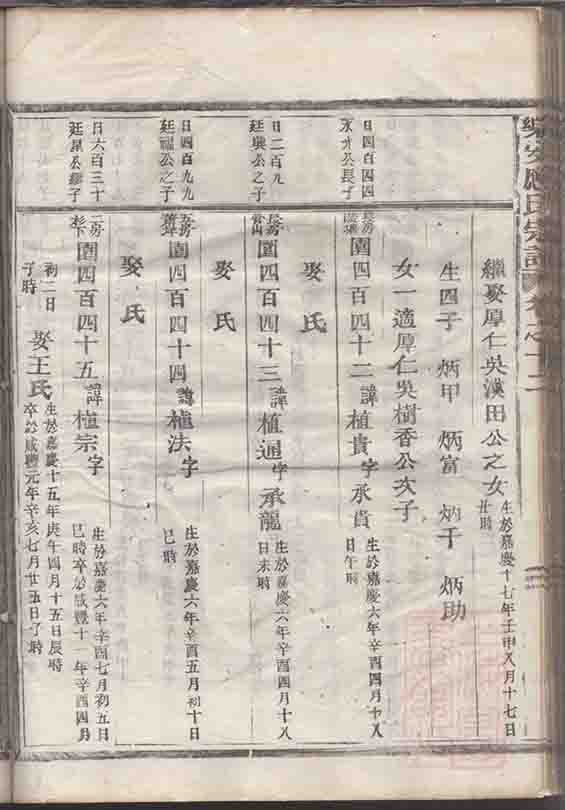 樂安應氏宗譜 卷之十二
繼娶厚仁吳漢田公之女 生於嘉慶十七年壬申八月十七日
丑時
生四子 炳甲 炳富 炳于 炳助
女一適厚仁吳樹香公次子
日四百四四
永 公長子
長房
園四百四十二 諱植貴 字承貴 生於嘉慶六年辛酉四月十八
日午時
娶 氏
日二百九
廷興公之子
長房
園四百四十三 諱植通 字承龍 生於嘉慶六年辛酉四月十八
日未時
娶 氏
日四百九九
廷福公之子
園四百四十四 諱植法 字 生於嘉慶六年辛酉五月初十日
巳時
娶 氏
日六百三十
廷 公繼子
二房
杉下
園四百四十五 諱植宗 字 生於嘉慶六年辛酉七月初五日
巳時卒於咸豐十一年辛酉四月
初二日
子時
娶王氏 生於嘉慶十五年庚午四月十五日辰時
卒於咸豐元年辛亥七月廿五日子時